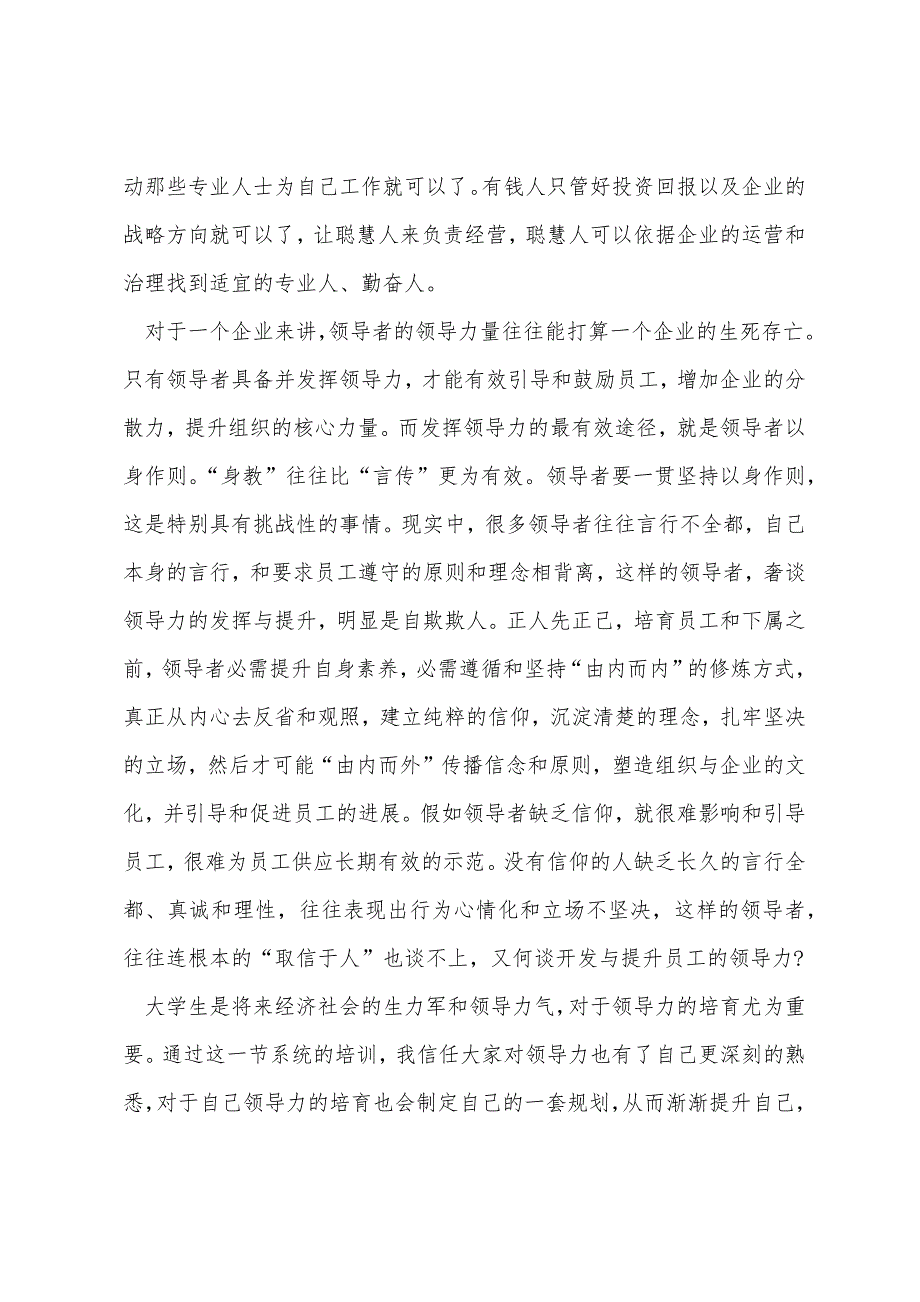 动那些专业人士为自己工作就可以了。有钱人只管好投资回报以及企业的
战略方向就可以了，让聪慧人来负责经营，聪慧人可以依据企业的运营和
治理找到适宜的专业人、勤奋人。
对于一个企业来讲，领导者的领导力量往往能打算一个企业的生死存亡。
只有领导者具备并发挥领导力，才能有效引导和鼓励员工，增加企业的分
散力，提升组织的核心力量。而发挥领导力的最有效途径，就是领导者以
身作则。“身教”往往比“言传”更为有效。领导者要一贯坚持以身作则，
这是特别具有挑战性的事情。现实中，很多领导者往往言行不全都，自己
本身的言行，和要求员工遵守的原则和理念相背离，这样的领导者，奢谈
领导力的发挥与提升，明显是自欺欺人。正人先正己，培育员工和下属之
前，领导者必需提升自身素养，必需遵循和坚持“由内而内”的修炼方式，
真正从内心去反省和观照，建立纯粹的信仰，沉淀清楚的理念，扎牢坚决
的立场，然后才可能“由内而外”传播信念和原则，塑造组织与企业的文
化，并引导和促进员工的进展。假如领导者缺乏信仰，就很难影响和引导
员工，很难为员工供应长期有效的示范。没有信仰的人缺乏长久的言行全
都、真诚和理性，往往表现出行为心情化和立场不坚决，这样的领导者，
往往连根本的“取信于人”也谈不上，又何谈开发与提升员工的领导力?
大学生是将来经济社会的生力军和领导力气，对于领导力的培育尤为重
要。通过这一节系统的培训，我信任大家对领导力也有了自己更深刻的熟
悉，对于自己领导力的培育也会制定自己的一套规划，从而渐渐提升自己，